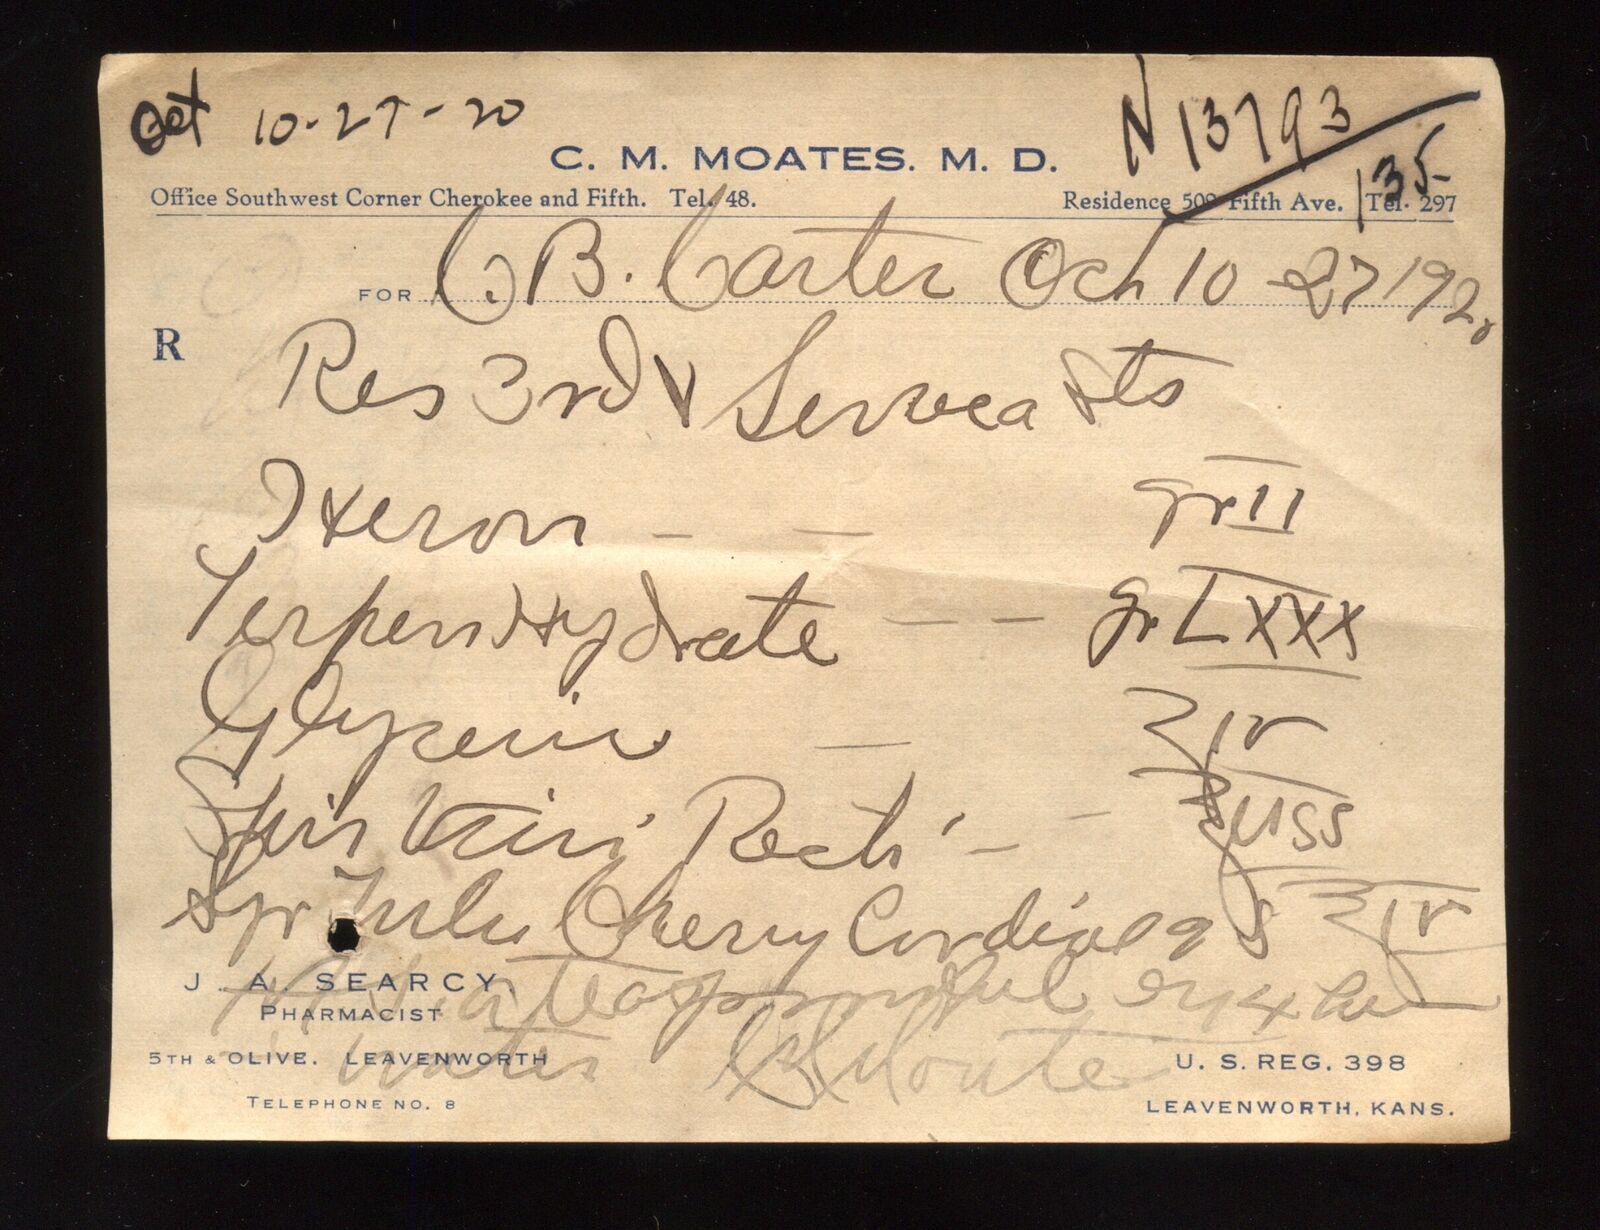 Oct 10-27-20
N 13793
135
C. M. MOATES. M. D.
Office Southwest Corner Cherokee and Fifth. Tel. 48.
Residence 509 Fifth Ave. Tel. 297
FOR C B. Carter Oct 10-27 1920
R
Res 3rd & Seneca Sts
Heroin — — gr II
Terpin Hydrate — — gr LXXX
Glycerin — ʒ iv
Spir Vini Recti — — ʒ iiss
Syr Tulu Cherry Cordial qs ʒ iv
a teaspoonful
water C M Moates
J. A. SEARCY.
PHARMACIST
5TH & OLIVE. LEAVENWORTH
TELEPHONE NO. 8
U. S. REG. 398
LEAVENWORTH, KANS.